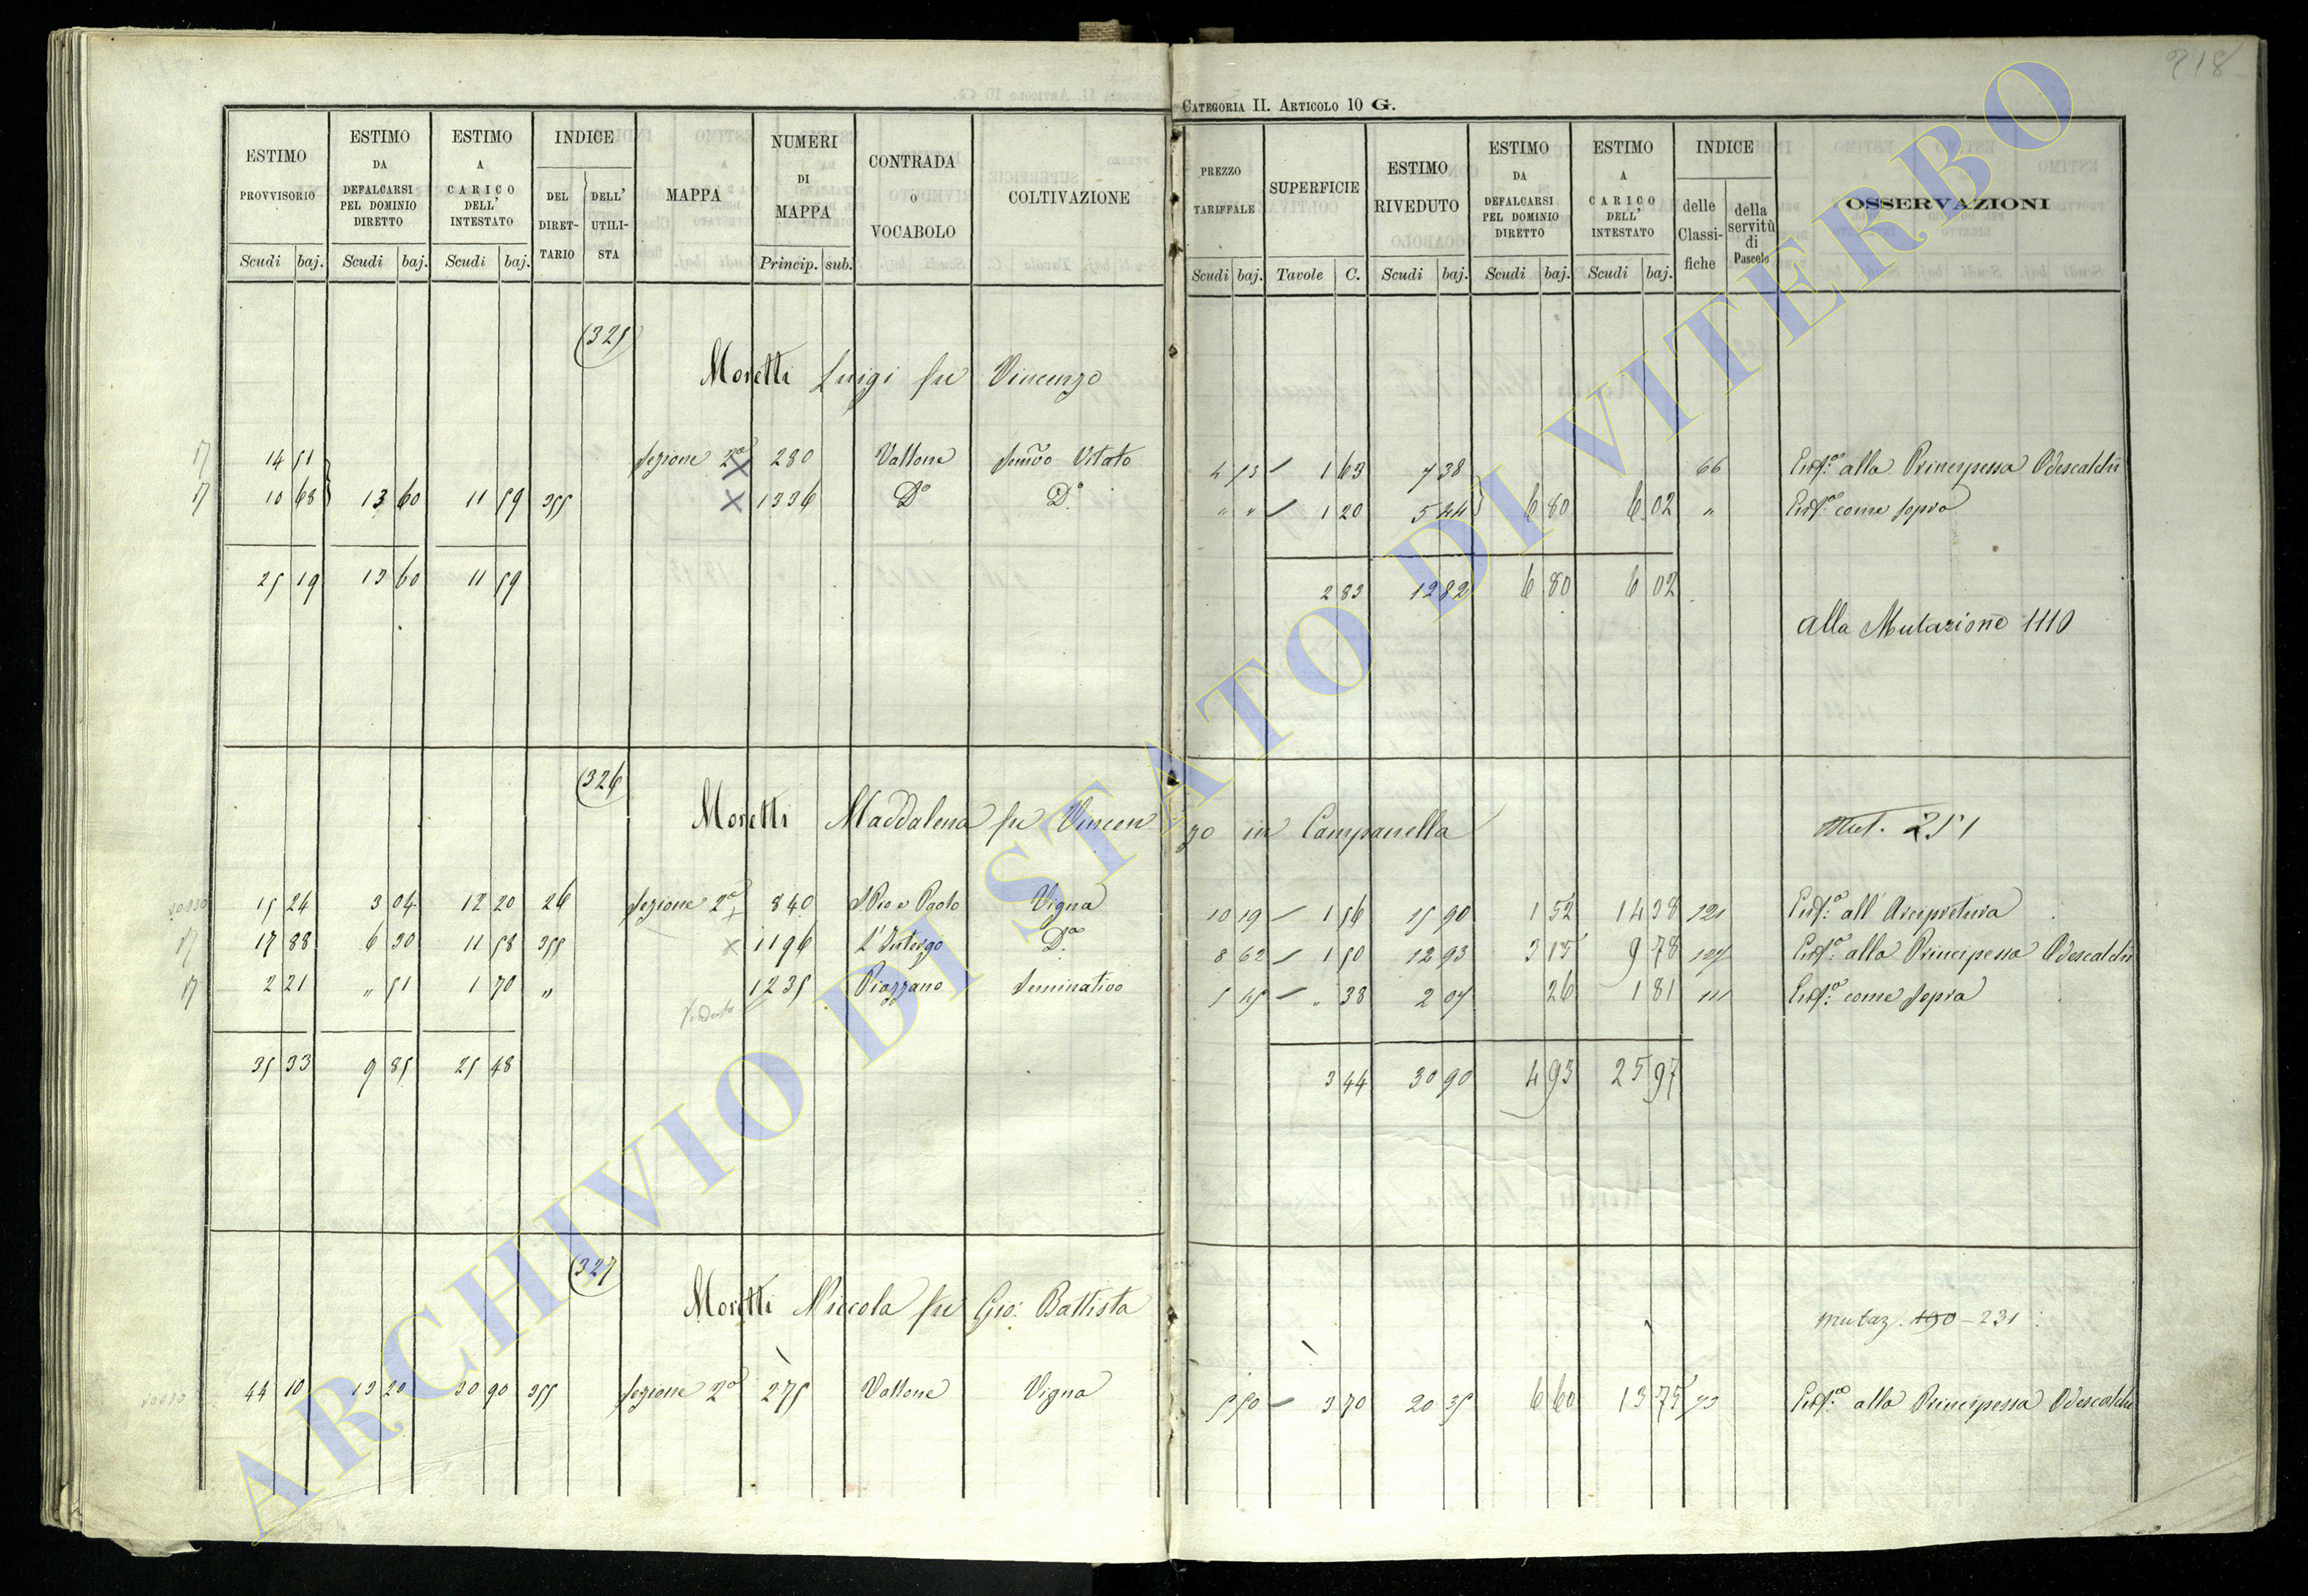 218
CATEGORIA II. ARTICOLO 10 G.
ESTIMO PROVVISORIO | ESTIMO DA DEFALCARSI PEL DOMINIO DIRETTO | ESTIMO A CARICO DELL' INTESTATO | INDICE DEL DIRETTARIO | DELL' UTILISTA | MAPPA | NUMERI DI MAPPA | CONTRADA O VOCABOLO | COLTIVAZIONE | PREZZO TARIFFALE | SUPERFICIE | ESTIMO RIVEDUTO | ESTIMO DA DEFALCARSI PEL DOMINIO DIRETTO | ESTIMO A CARICO DELL' INTESTATO | INDICE delle Classifiche | della servitù di Pascolo | OSSERVAZIONI
Scudi baj. Scudi baj. Scudi baj. Princip. sub. Scudi baj. Tavole C. Scudi baj. Scudi baj. Scudi baj.
(325)
Moretti Luigi fu Vincenzo
17 14 51 Sezione 2a X 280 Vallone Semvo Vitato 4 53 1 63 7 38 66 Enfa. alla Principessa Odescalchi
17 10 68 13 60 11 59 355 X 1336 Do Do " " 1 20 5 44 6 80 6 02 " Enfa. come sopra
25 19 13 60 11 59 2 83 12 82 6 80 6 02
Alla Mutazione 1110
(326)
Moretti Maddalena fu Vincenzo in Campanella Mut. 251
rosso 15 24 3 04 12 20 26 Sezione 2a x 840 S Pio o Paolo Vigna 10 19 1 56 15 90 1 52 14 38 121 Enfa. all' Arcipretura
17 17 88 6 30 11 58 355 x 1196 Do 8 62 1 50 12 93 3 15 9 78 127 Enfa. alla Principessa Odescalchi
17 2 21 " 51 1 70 " 1235 Piazzano Seminativo 5 45 " 38 2 07 26 1 81 111 Enfa. come sopra
35 33 9 85 25 48 3 44 30 90 4 93 25 97
(327)
Moretti Niccola fu Gio: Battista mutaz. 190 - 231
rosso 44 10 13 20 30 90 355 Sezione 2a 275 Vallone Vigna 5 50 3 70 20 35 6 60 13 75 73 Enfa. alla Principessa Odescalchi
ARCHIVIO DI STATO DI VITERBO